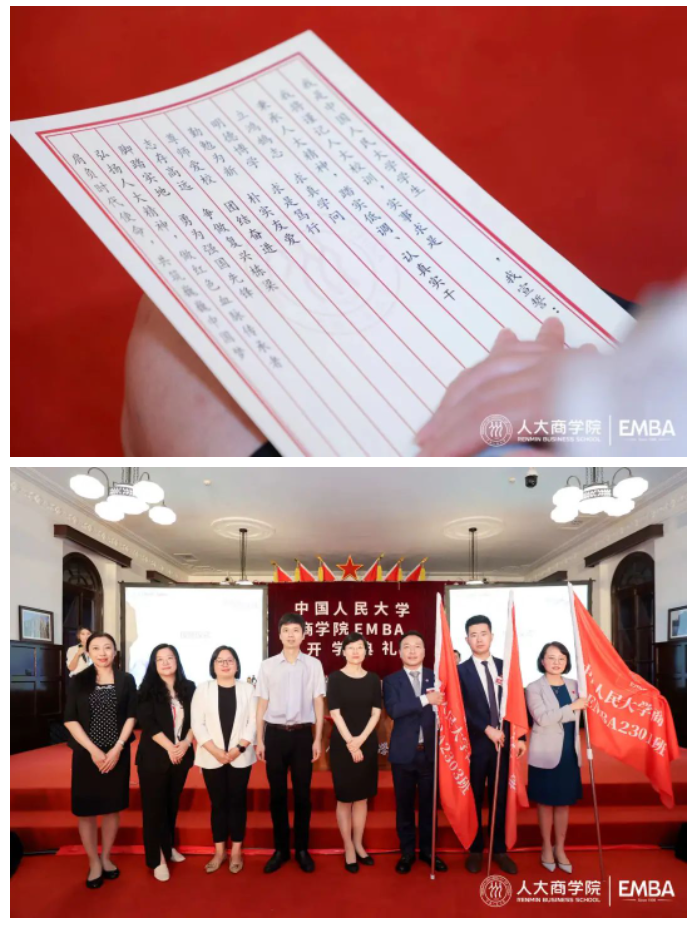 我是中国人民大学学生,我宣誓:
我将谨记人大校训,实事求是
秉承人大精神,踏实低调、认真实干
立鸿鹄志 求真学问
明德博学 求是笃行
为新 朴实友爱
尊师爱校 团结奋进
志存高远 争做复兴栋梁
脚踏实地 勇为强国先锋
弘扬人大精神,做红色血脉传承者
肩负时代使命,共筑巍巍中国梦
人大商学院 EMBA
RENMIN BUSINESS SCHOOL
中国人民大学
商学院EMBA
开学典礼
民大学
A2303班
人民大学商
EMBA2301班
人大商学院 EMBA
RENMIN BUSINESS SCHOOL